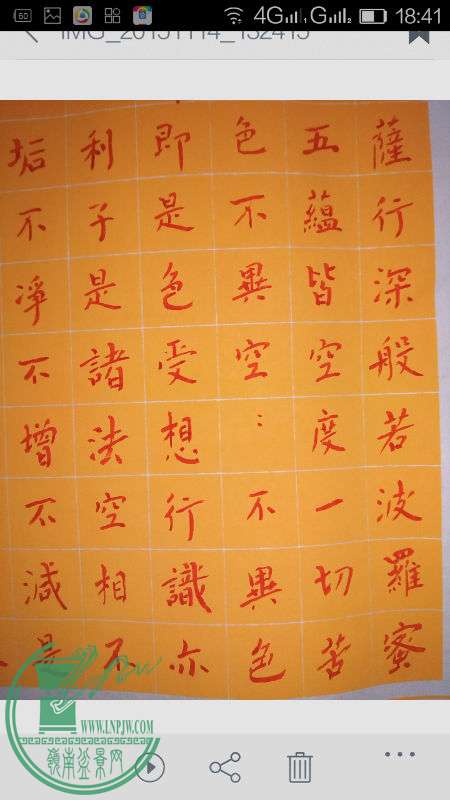 4G G 18:41
薩行深般若波羅蜜
五蘊皆空度一切苦
色不異空⋮不異色
即是色受想行識亦
利子是諸法空相不
垢不淨不增不減是
WWW.LNPJW.COM
嶺南盆景网